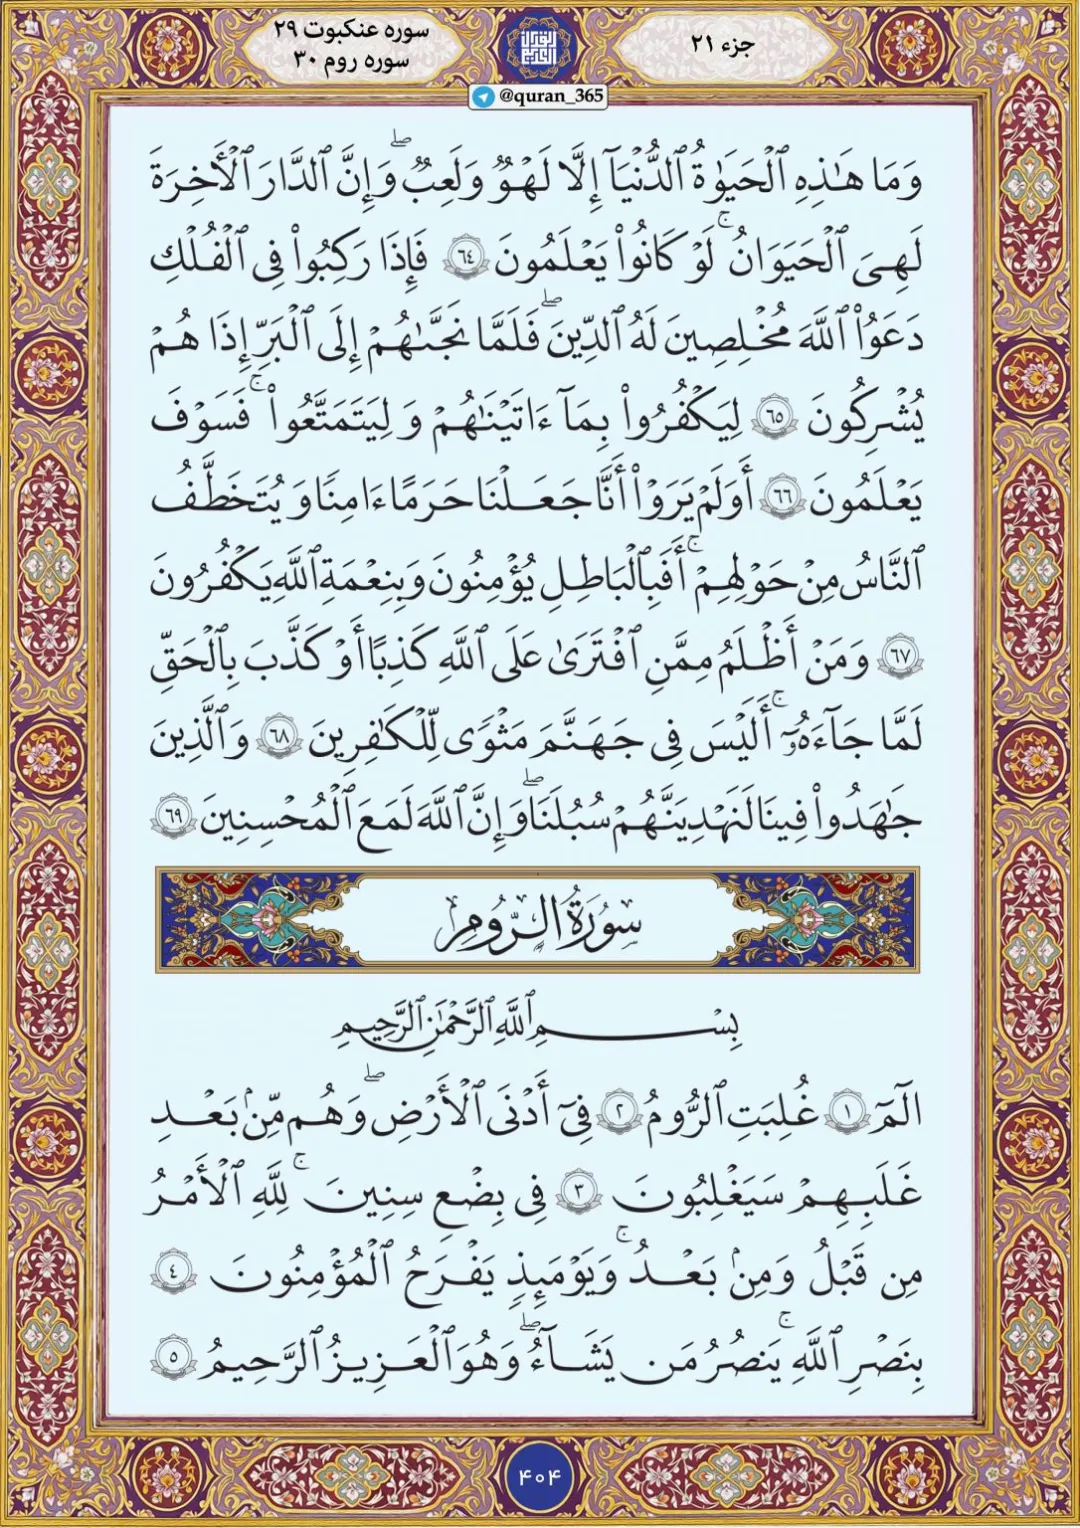 جزء ۲۱
سوره عنکبوت ۲۹
سوره روم ۳۰
@quran_365
وَمَا هَـٰذِهِ ٱلْحَيَوٰةُ ٱلدُّنْيَآ إِلَّا لَهْوٌ وَلَعِبٌ ۖ وَإِنَّ ٱلدَّارَ ٱلْأَخِرَةَ
لَهِىَ ٱلْحَيَوَانُ ۚ لَوْ كَانُوا۟ يَعْلَمُونَ ٦٤ فَإِذَا رَكِبُوا۟ فِى ٱلْفُلْكِ
دَعَوُا۟ ٱللَّهَ مُخْلِصِينَ لَهُ ٱلدِّينَ ۖ فَلَمَّا نَجَّىٰهُمْ إِلَى ٱلْبَرِّ إِذَا هُمْ
يُشْرِكُونَ ٦٥ لِيَكْفُرُوا۟ بِمَآ ءَاتَيْنَـٰهُمْ وَلِيَتَمَتَّعُوا۟ ۚ فَسَوْفَ
يَعْلَمُونَ ٦٦ أَوَلَمْ يَرَوْا۟ أَنَّا جَعَلْنَا حَرَمًا ءَامِنًا وَيُتَخَطَّفُ
ٱلنَّاسُ مِنْ حَوْلِهِمْ ۚ أَفَبِٱلْبَاطِلِ يُؤْمِنُونَ وَبِنِعْمَةِ ٱللَّهِ يَكْفُرُونَ
٦٧ وَمَنْ أَظْلَمُ مِمَّنِ ٱفْتَرَىٰ عَلَى ٱللَّهِ كَذِبًا أَوْ كَذَّبَ بِٱلْحَقِّ
لَمَّا جَآءَهُۥٓ ۚ أَلَيْسَ فِى جَهَنَّمَ مَثْوًى لِّلْكَـٰفِرِينَ ٦٨ وَٱلَّذِينَ
جَـٰهَدُوا۟ فِينَا لَنَهْدِيَنَّهُمْ سُبُلَنَا ۖ وَإِنَّ ٱللَّهَ لَمَعَ ٱلْمُحْسِنِينَ ٦٩
سُورَةُ الرُّومِ
بِسْمِ ٱللَّهِ ٱلرَّحْمَـٰنِ ٱلرَّحِيمِ
الٓمٓ ١ غُلِبَتِ ٱلرُّومُ ٢ فِىٓ أَدْنَى ٱلْأَرْضِ ۖ وَهُم مِّنۢ بَعْدِ
غَلَبِهِمْ سَيَغْلِبُونَ ٣ فِى بِضْعِ سِنِينَ ۚ لِلَّهِ ٱلْأَمْرُ
مِن قَبْلُ وَمِنۢ بَعْدُ ۚ وَيَوْمَئِذٍ يَفْرَحُ ٱلْمُؤْمِنُونَ ٤
بِنَصْرِ ٱللَّهِ ۚ يَنصُرُ مَن يَشَآءُ ۖ وَهُوَ ٱلْعَزِيزُ ٱلرَّحِيمُ ٥
۴۰۴